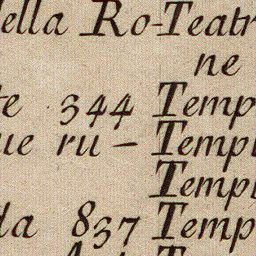 della Ro-Teatr
ne
te 344 Temp
ue ru- Templ
Templ
da 837 Temp